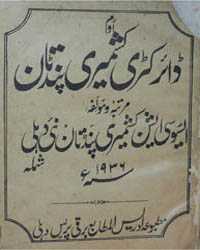 اوم
ڈائرکٹری کشمیری پنڈتان
مرتبہ و مؤلفہ
ایسوسی ایشن کشمیری پنڈتان نئی دہلی
شملہ
سنہ ۱۹۳۶ء
مطبوعہ ادریس المطابع برقی پریس دہلی